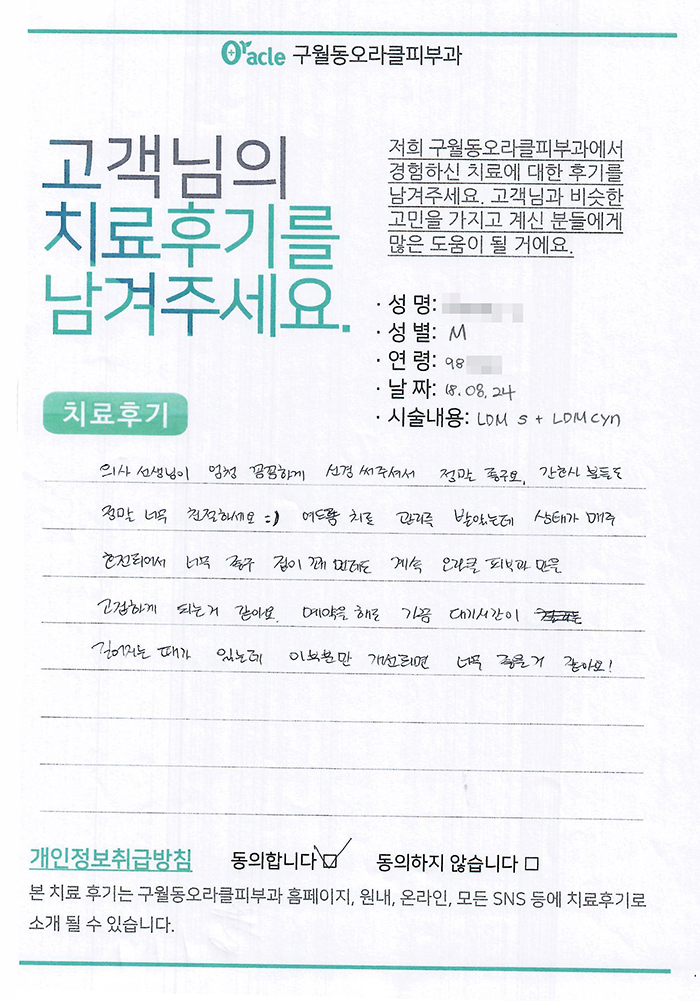 Oracle 구월동오라클피부과
고객님의
치료후기를
남겨주세요.
저희 구월동오라클피부과에서
경험하신 치료에 대한 후기를
남겨주세요. 고객님과 비슷한
고민을 가지고 계신 분들에게
많은 도움이 될 거에요.
· 성 명:
· 성 별: M
· 연 령: 98
· 날 짜: 18.08.24
· 시술내용: LDM S + LDM cyn
치료후기
의사 선생님이 엄청 꼼꼼하게 신경 써주셔서 정말 좋구요, 간호사 분들도
정말 너무 친절하세요 =) 여드름 치료 관리를 받았는데 상태가 매우
호전되어서 너무 좋구 집이 꽤 먼데도 계속 오라클 피부과 만을
고집하게 되는거 같아요. 예약을 해도 가끔 대기시간이
길어지는 때가 있는데 이부분만 개선되면 너무 좋을거 같아요!
개인정보취급방침 동의합니다 ☑ 동의하지 않습니다 □
본 치료 후기는 구월동오라클피부과 홈페이지, 원내, 온라인, 모든 SNS 등에 치료후기로
소개 될 수 있습니다.